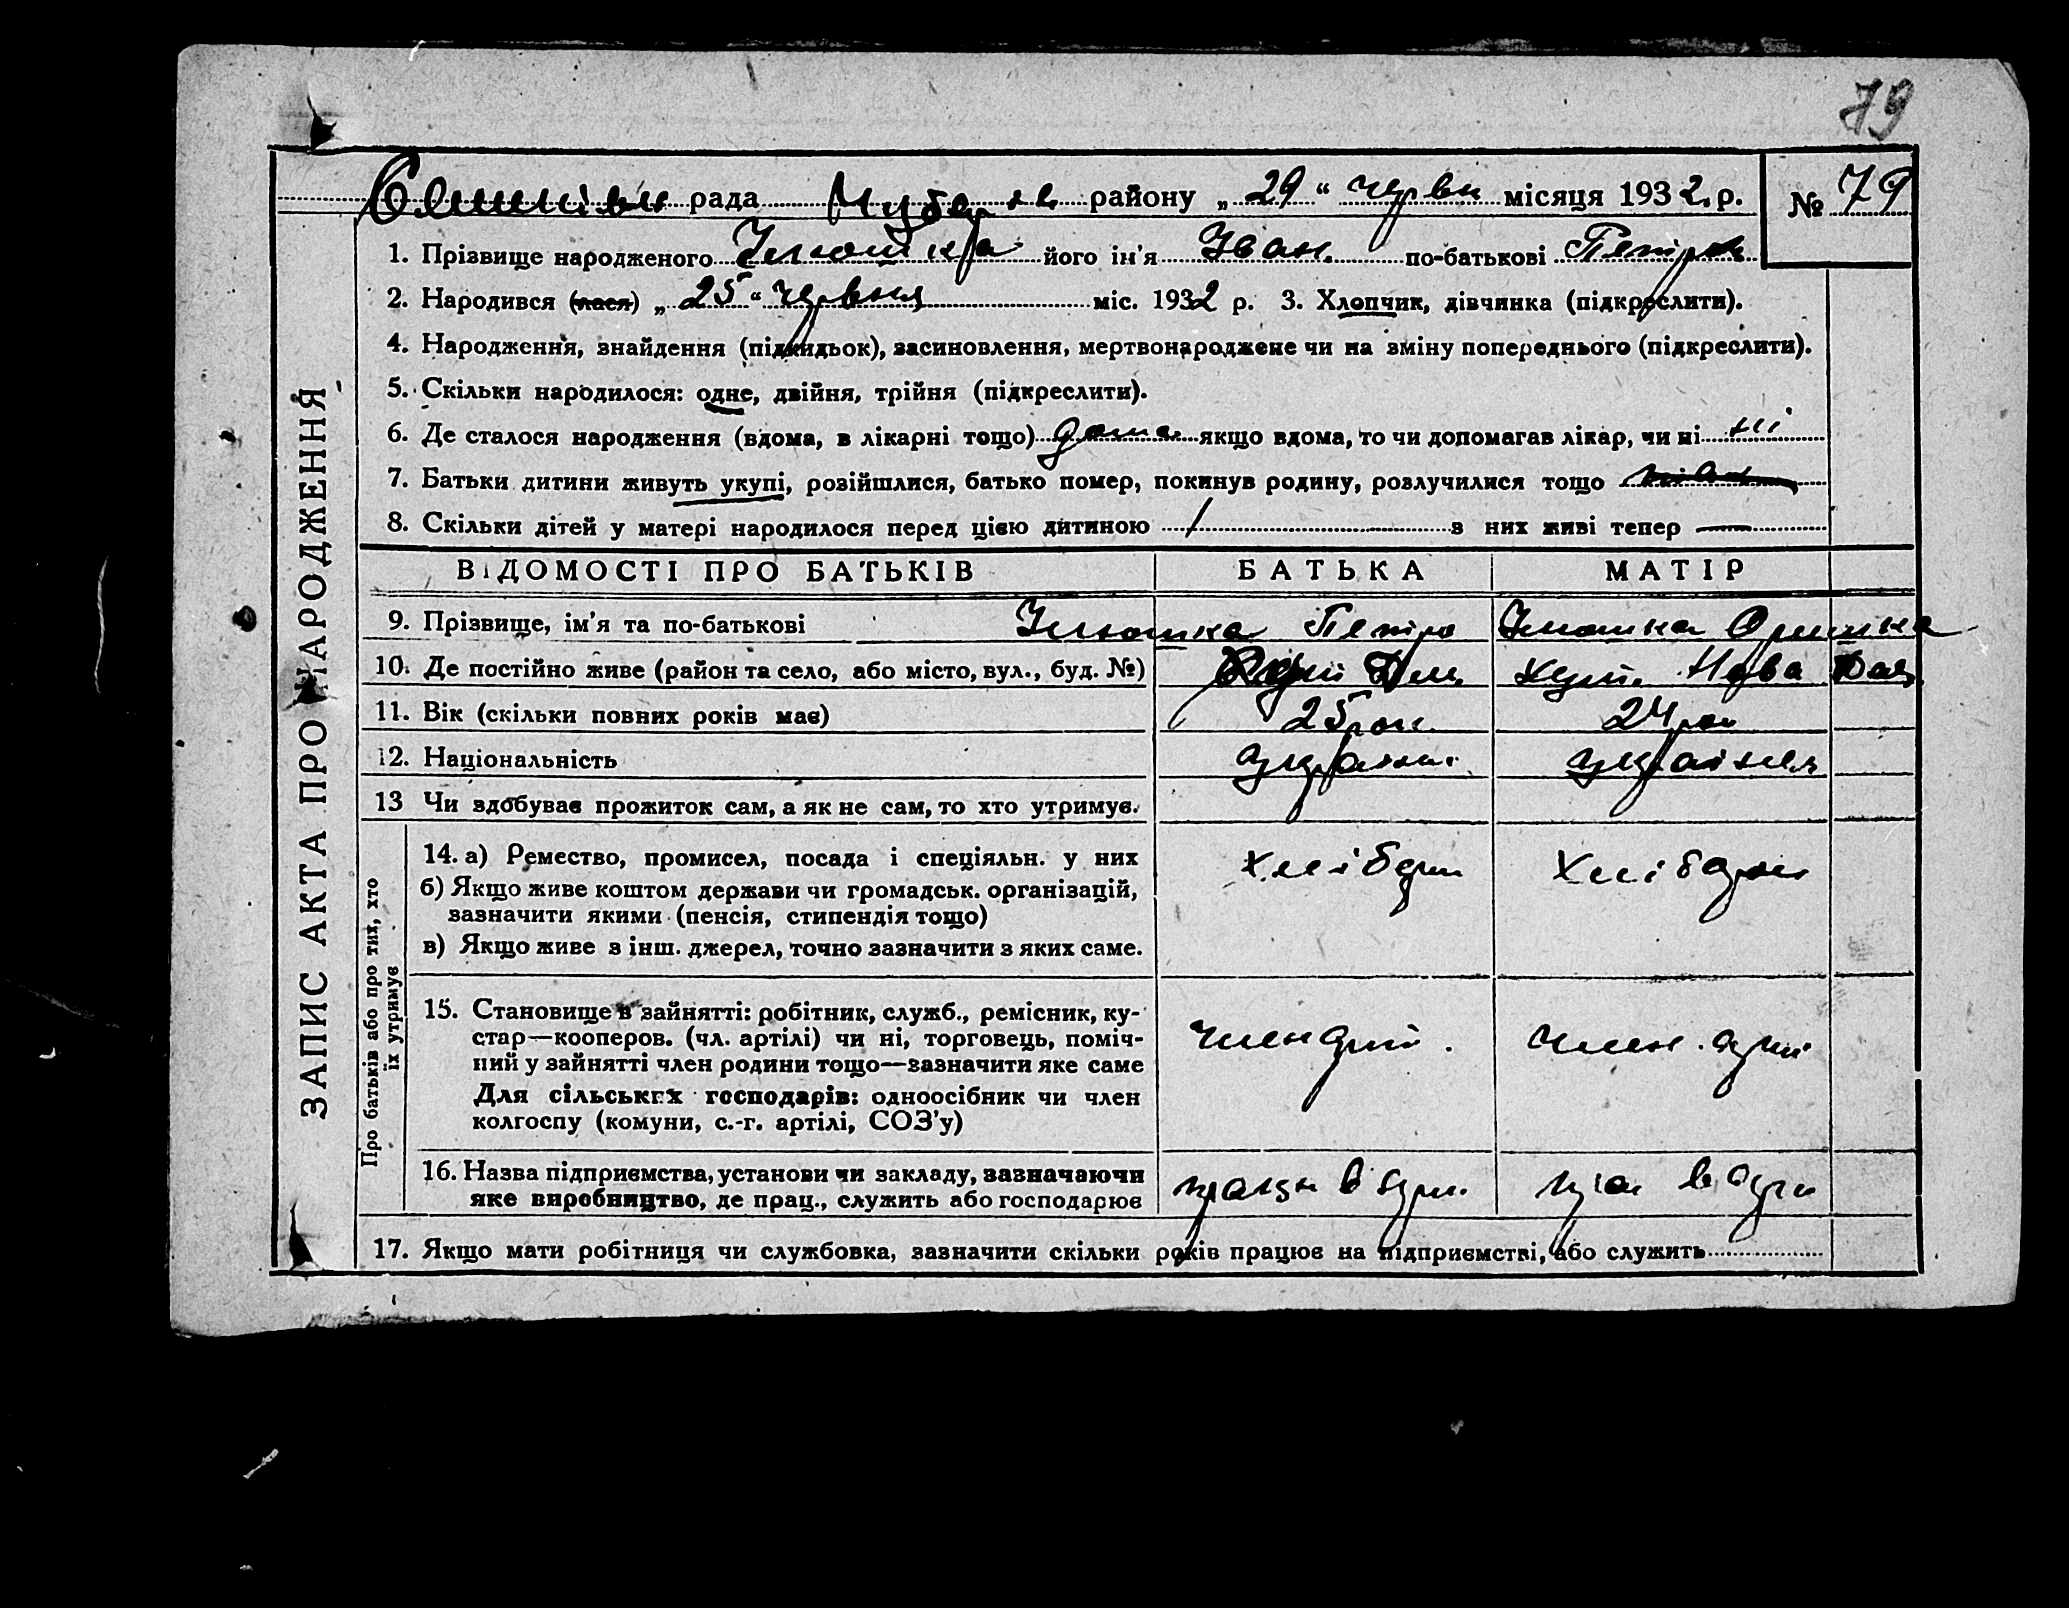 79
рада району „29“ черв місяця 1932. р. № 79
1. Прізвище народженого його ім'я Іван. по-батькові Петров
2. Народився (лася) „25“ червня міс. 1932 р. 3. Хлопчик, дівчинка (підкреслити).
4. Народження, знайдення (підкидьок), засиновлення, мертвонароджене чи на зміну попереднього (підкреслити).
5. Скільки народилося: одне, двійня, трійня (підкреслити).
6. Де сталося народження (вдома, в лікарні тощо) дома якщо вдома, то чи допомагав лікар, чи ні ні
7. Батьки дитини живуть укупі, розійшлися, батько помер, покинув родину, розлучилися тощо
8. Скільки дітей у матері народилося перед цією дитиною 1 з них живі тепер —
ВІДОМОСТІ ПРО БАТЬКІВ БАТЬКА МАТІР
9. Прізвище, ім'я та по-батькові Петро
10. Де постійно живе (район та село, або місто, вул., буд. №) Нова
11. Вік (скільки повних років має) 25 рок. 24 рок
12. Національність
13 Чи здобуває прожиток сам, а як не сам, то хто утримує.
14. а) Ремество, промисел, посада і спеціяльн. у них хлібор хлібор
б) Якщо живе коштом держави чи громадськ. організацій,
зазначити якими (пенсія, стипендія тощо)
в) Якщо живе з інш. джерел, точно зазначити з яких саме.
15. Становище в зайнятті: робітник, служб., ремісник, ку-
стар—кооперов. (чл. артілі) чи ні, торговець, поміч-
ний у зайнятті член родини тощо—зазначити яке саме
Для сільських господарів: одноосібник чи член
колгоспу (комуни, с.-г. артілі, СОЗ'у)
член член
16. Назва підприємства, установи чи закладу, зазначаючи
яке виробництво, де прац., служить або господарює
17. Якщо мати робітниця чи службовка, зазначити скільки років працює на підприємстві, або служить
ЗАПИС АКТА ПРО НАРОДЖЕННЯ
Про батьків або про тих, хто
їх утримує